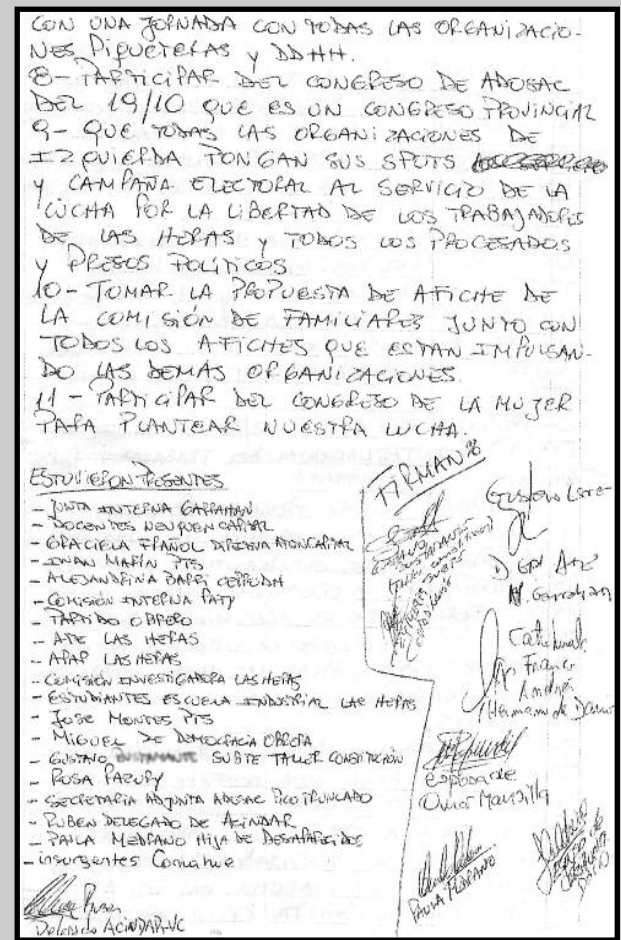 CON UNA JORNADA CON TODAS LAS ORGANIZACIO-
NES PIQUETERAS Y DDHH.
8- PARTICIPAR DEL CONGRESO DE ADOSAC
DEL 19/10 QUE ES UN CONGRESO PROVINCIAL
9- QUE TODAS LAS ORGANIZACIONES DE
IZQUIERDA PONGAN SUS SPOTS
Y CAMPAÑA ELECTORAL AL SERVICIO DE LA
LUCHA POR LA LIBERTAD DE LOS TRABAJADORES
DE LAS HERAS Y TODOS LOS PROCESADOS
Y PRESOS POLÍTICOS
10- TOMAR LA PROPUESTA DE AFICHE DE
LA COMISIÓN DE FAMILIARES JUNTO CON
TODOS LOS AFICHES QUE ESTAN IMPULSAN-
DO LAS DEMAS ORGANIZACIONES.
11- PARTICIPAR DEL CONGRESO DE LA MUJER
PARA PLANTEAR NUESTRA LUCHA.
ESTUVIERON PRESENTES
- JUNTA INTERNA GARRAHAN
- DOCENTES NEUQUEN CAPITAL
- GRACIELA FRAÑOL DIRECTIVA ATEN CAPITAL
- IVAN MARÍN PTS
- ALEJANDRINA BARRY CEPRODH
- COMISIÓN INTERNA PATY
- PARTIDO OBRERO
- ATE LAS HERAS
- APAP LAS HERAS
- COMISIÓN INVESTIGADORA LAS HERAS
- ESTUDIANTES ESCUELA INDUSTRIAL LAS HERAS
- JOSE MONTES PTS
- MIGUEL DE DEMOCRACIA OBRERA
- GUSTAVO SUBTE TALLER CONSTITUCIÓN
- ROSA
- SECRETARIA ADJUNTA ADOSAC PICO TRUNCADO
- RUBEN DELEGADO DE ACINDAR
- PAULA MEDRANO HIJA DE DESAPARECIDOS
- insurgentes Comahue
Delegado ACINDAR-VC
FIRMAN:
GUSTAVO
Franco
Hermano de
esposa de
Omar Mansilla
PAULA MEDRANO